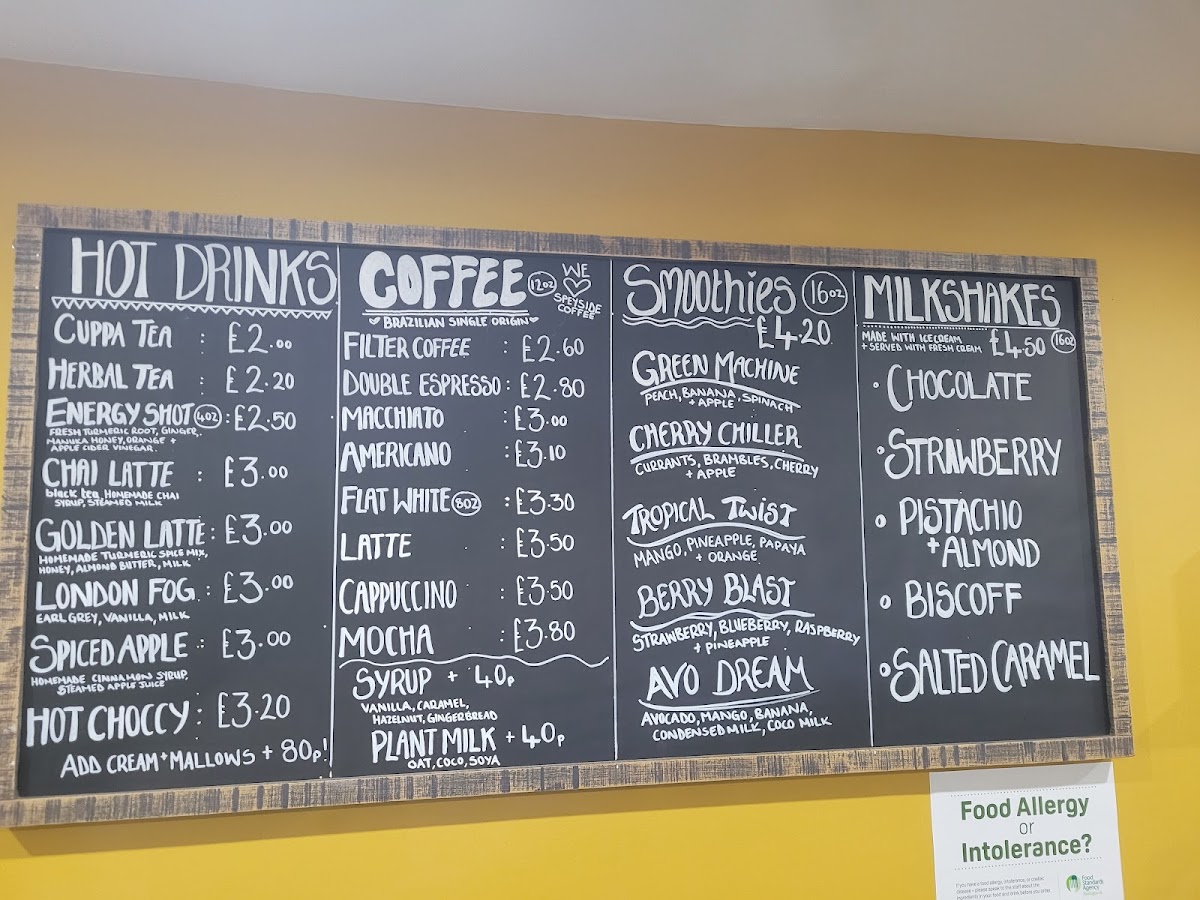 HOT DRINKS
CUPPA TEA : £2.00
HERBAL TEA : £2.20
ENERGY SHOT 4OZ : £2.50
FRESH TURMERIC ROOT, GINGER,
MANUKA HONEY, ORANGE +
APPLE CIDER VINEGAR.
CHAI LATTE : £3.00
black tea, HOMEMADE CHAI
SYRUP, STEAMED MILK
GOLDEN LATTE : £3.00
HOMEMADE TURMERIC SPICE MIX,
HONEY, ALMOND BUTTER, MILK
LONDON FOG : £3.00
EARL GREY, VANILLA, MILK
SPICED APPLE : £3.00
HOMEMADE CINNAMON SYRUP,
STEAMED APPLE JUICE
HOT CHOCCY : £3.20
ADD CREAM + MALLOWS + 80p!
COFFEE 12OZ
WE ♡
SPEYSIDE
COFFEE
♥ BRAZILIAN SINGLE ORIGIN ♥
FILTER COFFEE : £2.60
DOUBLE ESPRESSO : £2.80
MACCHIATO : £3.00
AMERICANO : £3.10
FLAT WHITE 8OZ : £3.30
LATTE : £3.50
CAPPUCCINO : £3.50
MOCHA : £3.80
SYRUP + 40p
VANILLA, CARAMEL,
HAZELNUT, GINGERBREAD
PLANT MILK + 40p
OAT, COCO, SOYA
SMOOTHIES 16OZ
£4.20
GREEN MACHINE
PEACH, BANANA, SPINACH
+ APPLE
CHERRY CHILLER
CURRANTS, BRAMBLES, CHERRY
+ APPLE
TROPICAL TWIST
MANGO, PINEAPPLE, PAPAYA
+ ORANGE
BERRY BLAST
STRANBERRY, BLUEBERRY, RASPBERRY
+ PINEAPPLE
AVO DREAM
AVOCADO, MANGO, BANANA,
CONDENSED MILK, COCO MILK
MILKSHAKES
MADE WITH ICECREAM
+ SERVED WITH FRESH CREAM £4.50 16OZ
• CHOCOLATE
• STRAWBERRY
• PISTACHIO
+ ALMOND
• BISCOFF
• SALTED CARAMEL
Food Allergy
or
Intolerance?
If you have a food allergy, intolerance, or coeliac
disease – please speak to the staff about the
ingredients in your food and drink before you order.
Food
Standards
Agency